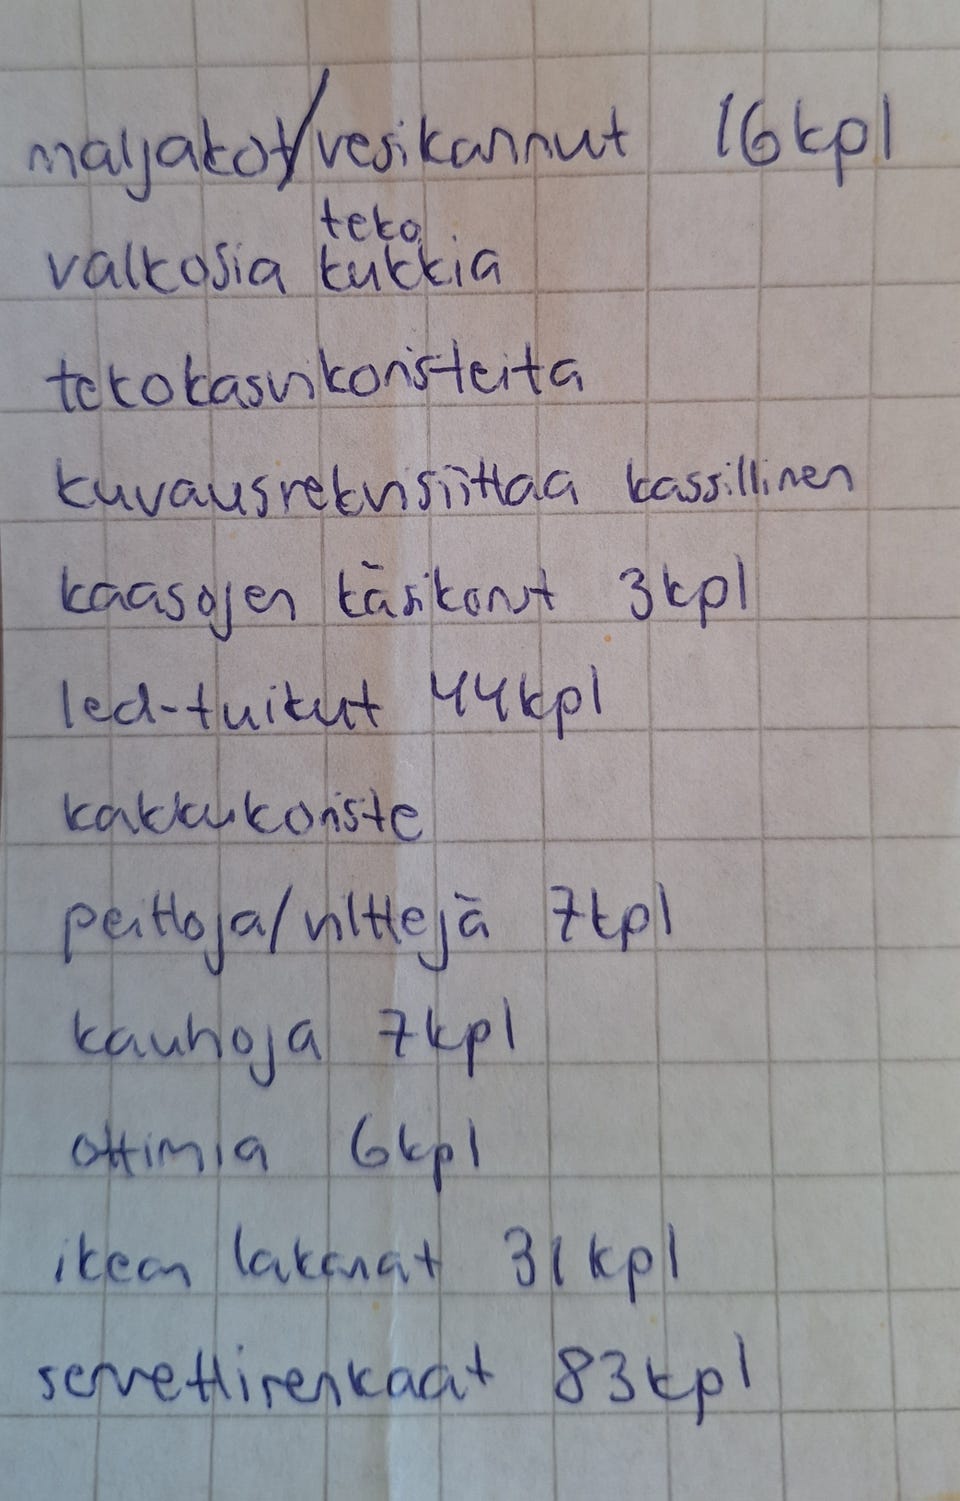 maljakot/vesikannut 16kpl
teko
valkosia kukkia
tekokasvikoristeita
kuvausrekvisiittaa kassillinen
kaasojen käsikorut 3kpl
led-tuikut 44kpl
kakkukoriste
peittoja/vilttejä 7kpl
kauhoja 7kpl
ottimia 6kpl
ikean lakanat 31kpl
servettirenkaat 83kpl